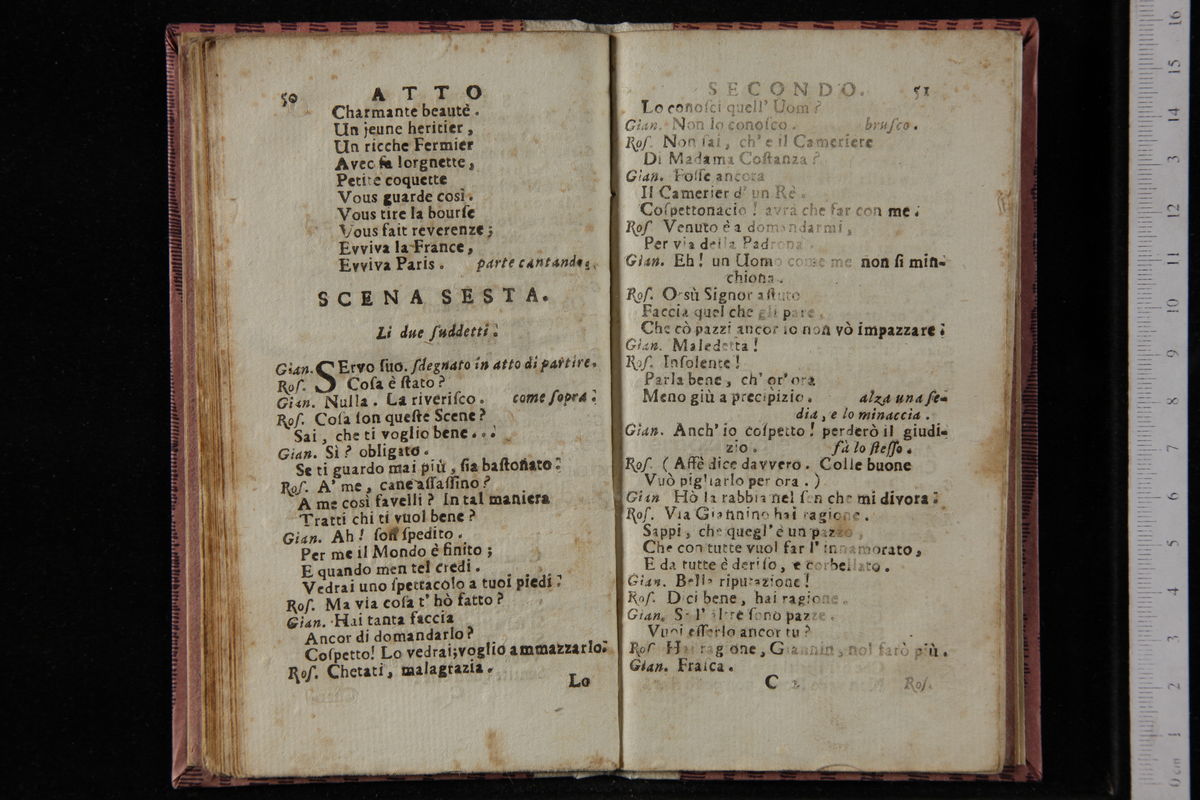 50 ATTO
Charmante beautè.
Un jeune heritier,
Un ricche Fermier
Avec sa lorgnette,
Petite coquette
Vous guarde così.
Vous tire la bourſe
Vous fait reverenze;
Evviva la France,
Evviva Paris. parte cantando.
SCENA SESTA.
Li due ſuddetti.
Gian. SErvo ſuo. ſdegnato in atto di partire.
Roſ. Coſa è ſtato?
Gian. Nulla. La riveriſco. come ſopra.
Roſ. Coſa ſon queſte Scene?
Sai, che ti voglio bene...
Gian. Sì? obligato.
Se ti guardo mai più, ſia baſtonato.
Roſ. A' me, cane aſſaſſino?
A me così favelli? In tal maniera
Tratti chi ti vuol bene?
Gian. Ah! ſon ſpedito.
Per me il Mondo è finito;
E quando men tel credi.
Vedrai uno ſpettacolo a tuoi piedi.
Roſ. Ma via coſa t' hò fatto?
Gian. Hai tanta faccia
Ancor di domandarlo?
Coſpetto! Lo vedrai; voglio ammazzarlo.
Roſ. Chetati, malagrazia.
Lo
SECONDO. 51
Lo conoſci quell' Uom?
Gian. Non lo conoſco. bruſco.
Roſ. Non ſai, ch' e il Cameriere
Di Madama Coſtanza?
Gian. Foſſe ancora
Il Camerier d' un Rè.
Coſpettonacio! avrà che far con me.
Roſ Venuto è a domandarmi,
Per via della Padrona.
Gian. Eh! un Uomo come me non ſi min-
chiona.
Roſ. Orsù Signor aſtuto
Faccia quel che gli pare.
Che cò pazzi ancor io non vò impazzare.
Gian. Maledetta!
Roſ. Inſolente!
Parla bene, ch' or' ora
Meno giù a precipizio. alza una ſe-
dia, e lo minaccia.
Gian. Anch' io coſpetto! perderò il giudi-
zio. fà lo ſteſſo.
Roſ. (Affè dice davvero. Colle buone
Vuò pigliarlo per ora.)
Gian Hò la rabbia nel ſen che mi divora.
Roſ. Via Giannino hai ragione.
Sappi, che quegl' è un pazzo,
Che con tutte vuol far l' innamorato,
E da tutte è deriſo, e corbellato.
Gian. Bella riputazione!
Roſ. Dici bene, hai ragione.
Gian. Se l' altre ſono pazze.
Vuoi eſſerlo ancor tu?
Roſ Hai ragione, Giannin, nol farò più.
Gian. Fraſca.
C 2 Roſ.